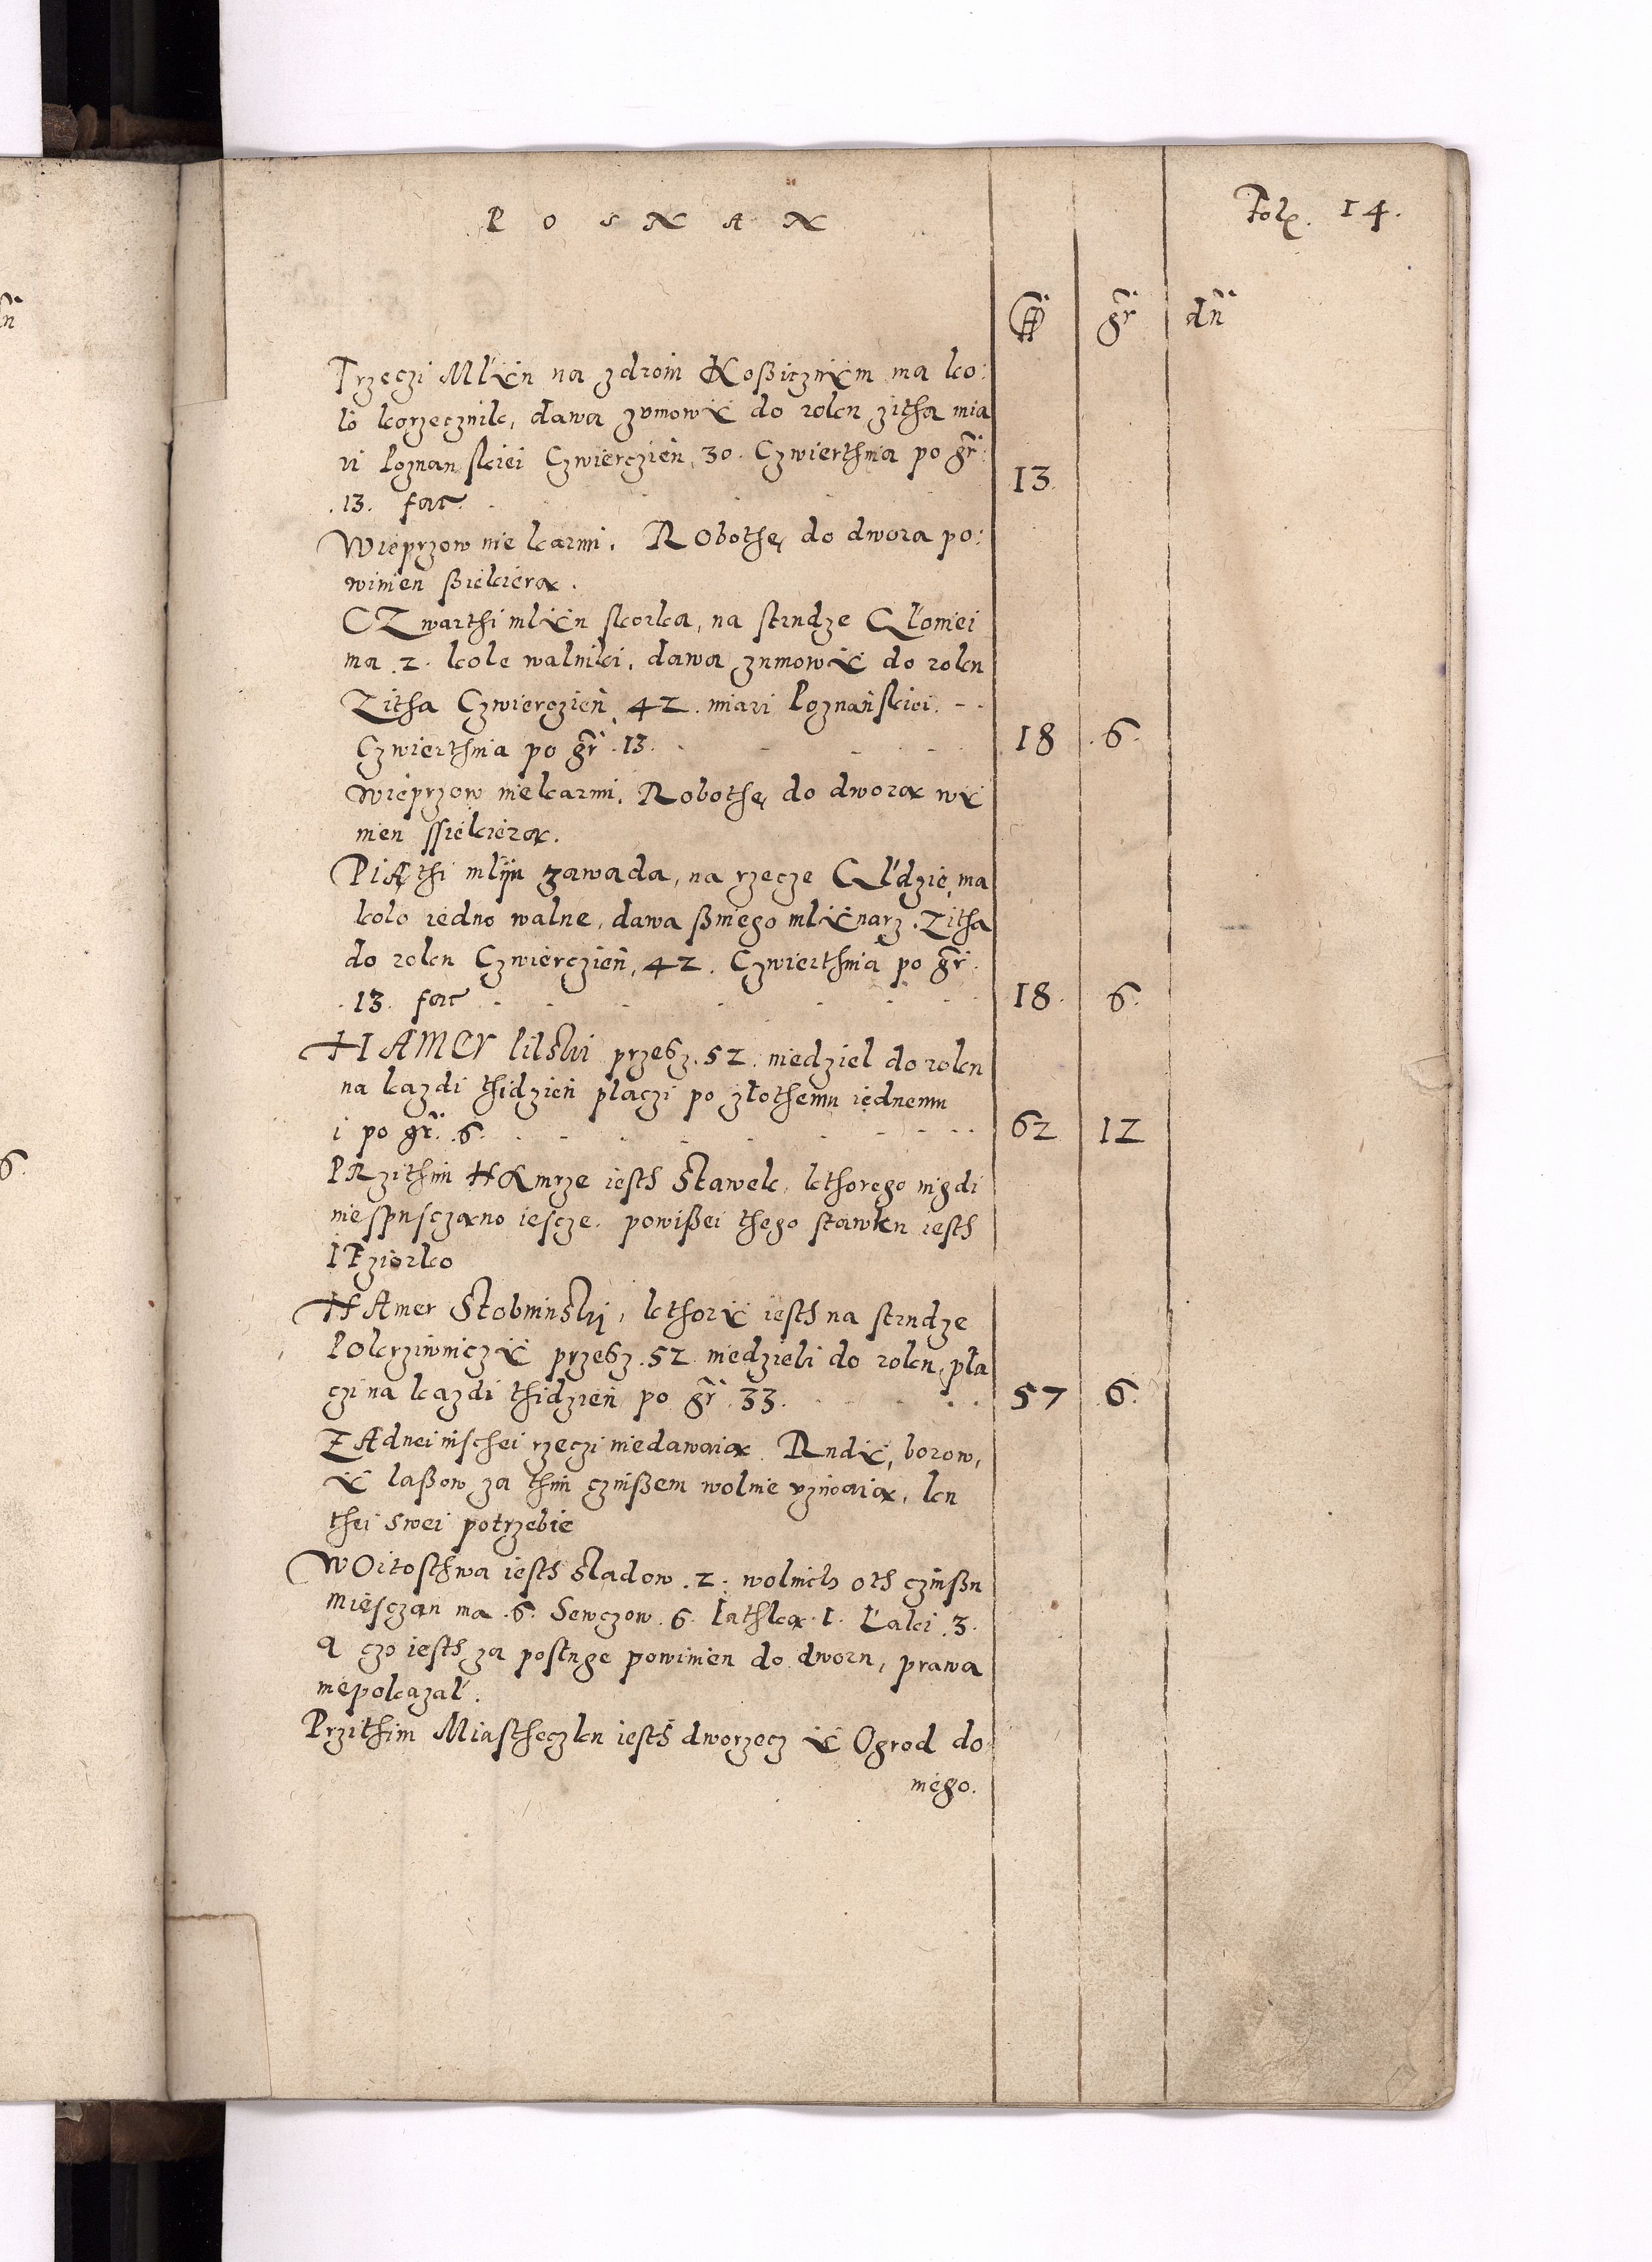 POSNAN
Fol. 14.
fl gr dn
Trzeczi Mlẏn na zdroiu Koßicznẏm ma ko:
lo korzecznik, dawa zumowẏ do roku zitha mia
ri Poznanskiei Czwierczien, 30. Czwierthnia po gr.
.13. fac. 13.
Wieprzow nie karmi. Robothę do dwora po:
winien ßiekierą.
CZwarthi mlẏn skorka, na strudze Głomei
ma .2. kole walniki, dawa zumowẏ do roku
Zitha Czwierczien .42. miari Poznanskiei. - -
Czwierthnia po gr .13. 18 6.
Wieprzow niekarmi. Robothę do dworą wẏ
nien ssiekierą.
PiĄthi mlijn zawada, na rzecze Głdzie, ma
kolo iedno walne, dawa ßniego mlẏnarz. Zitha
do roku Czwierczien, 42. Czwierthnia po gr.
.13. fac 18. 6.
HAMEr Pilski przesz .52. niedziel do roku
na kazdi thidzien placzi po złothemu iednemu
i po gr. .6. 62 12
PRzithim HAmrze iesth Stawek, kthorego nigdi
niespusczano iescze. powißei thego stawku iesth
IEziorko
HAmer Stobninski, kthorẏ iesth na strudze
Pokrziwniczẏ przesz .52. niedzieli do roku, pła
czi na kazdi thidzien po gr 33. 57 6.
ZAdnei inschei rzeczi niedawaią. Rudẏ, borow,
ẏ laßow za thim czinßem wolnie uziwaią, ku
thei swei potrzebie
WOitosthwa iesth Sladow .2. wolnich oth czinßu
Miesczan ma .6. Sewczow .6. Jathka .1. Łaki .3.
A czo iesth za posluge powinien do dworu, prawa
niepokazal.
Przithim Miastheczku iesth dworzecz ẏ Ogrod do
niego.